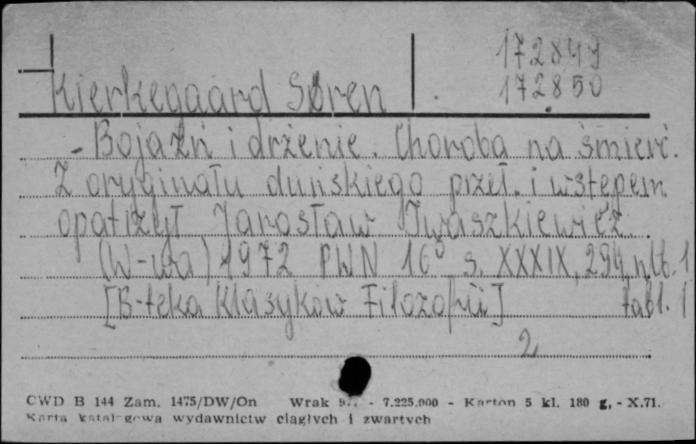 172849
172850
Kierkegaard Søren
- Bojaźń i drżenie. Choroba na śmierć.
Z oryginału duńskiego przeł. i wstępem
opatrzył Jarosław Iwaszkiewicz.
(W-wa) 1972 PWN 16° s. XXXIX, 294, nlb. 1
[B-teka Klasyków Filozofii] tabl. 1
2
CWD B 144 Zam. 1475/DW/On Wrak - 7.225.000 - Karton 5 kl. 180 g, - X.71.
Karta katalogowa wydawnictw ciągłych i zwartych